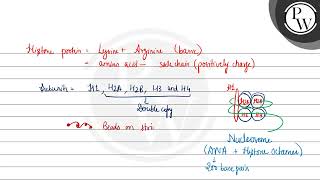 PW
Histone protein = Lysine + Arginine (basic)
= amino acid — side chain (positively charge)
Subunits = H1, H2A, H2B, H3 and H4
H1
Double copy
Beads on stri
Nucleosome
(DNA + Histone Octamer)
200 base pairs